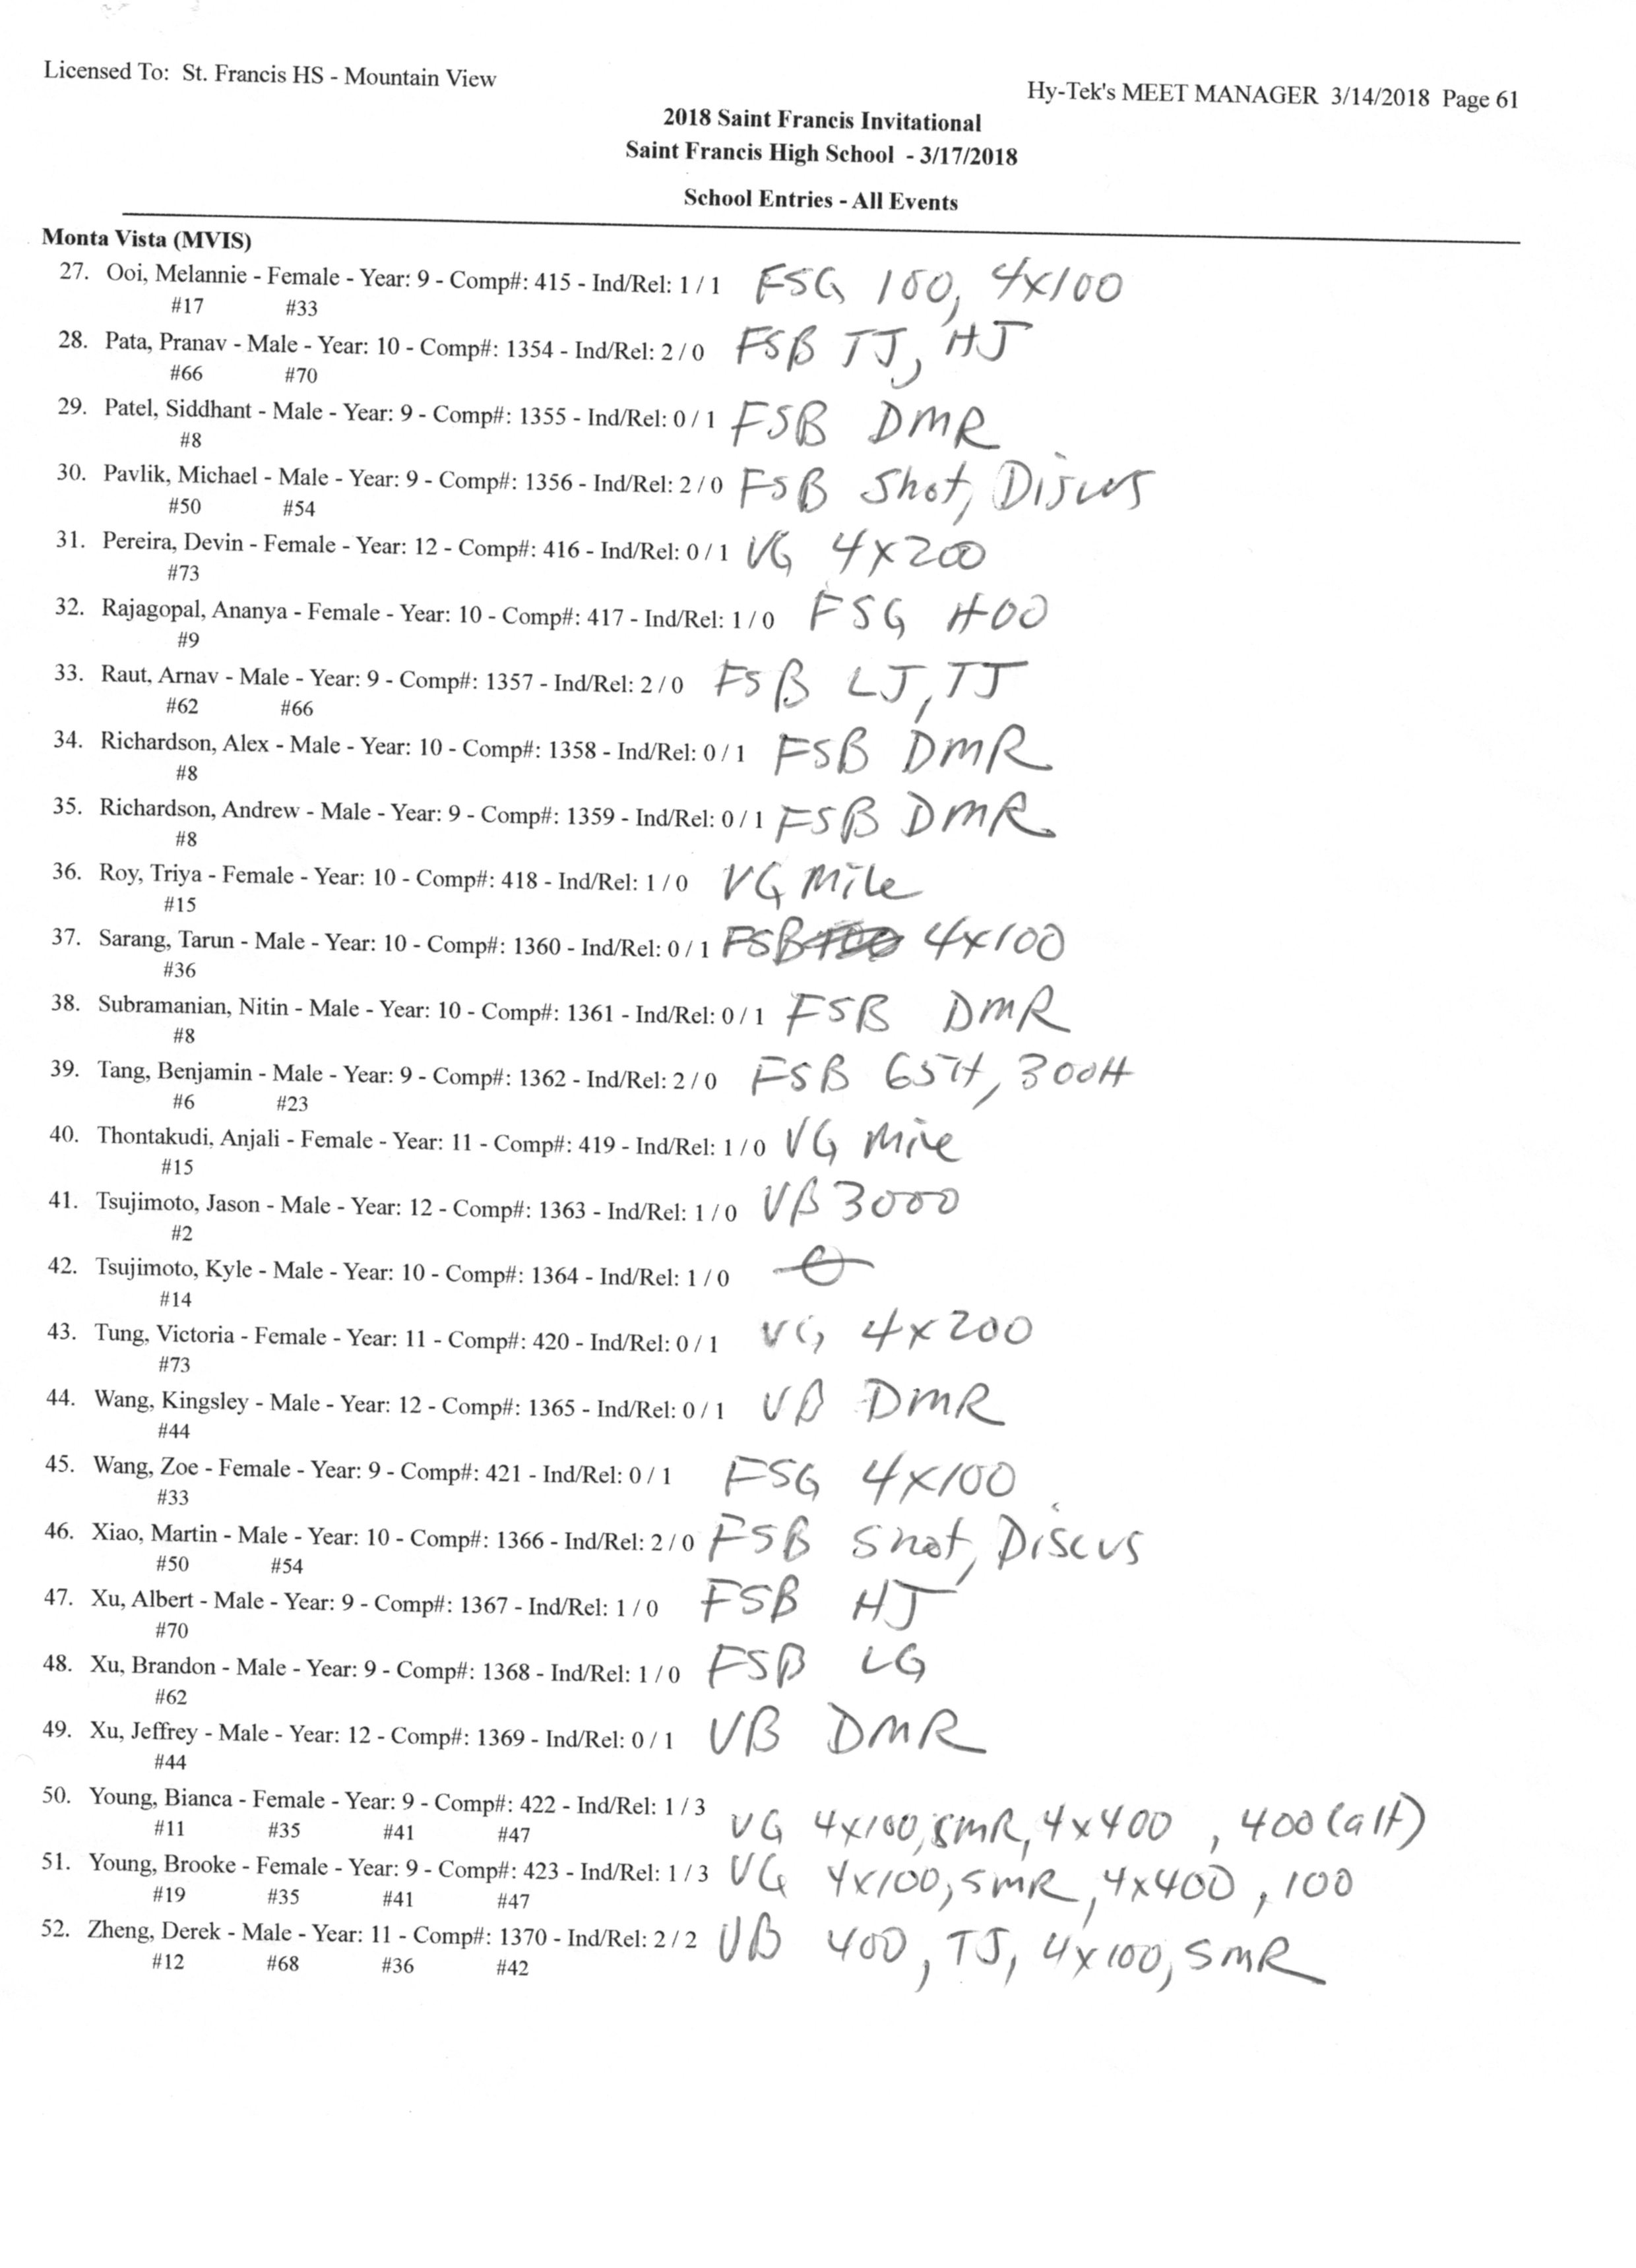 Licensed To: St. Francis HS - Mountain View
Hy-Tek's MEET MANAGER 3/14/2018 Page 61
2018 Saint Francis Invitational
Saint Francis High School - 3/17/2018
School Entries - All Events
Monta Vista (MVIS)
27. Ooi, Melannie - Female - Year: 9 - Comp#: 415 - Ind/Rel: 1 / 1 FSG 100, 4x100
#17 #33
28. Pata, Pranav - Male - Year: 10 - Comp#: 1354 - Ind/Rel: 2 / 0 FSB TJ, HJ
#66 #70
29. Patel, Siddhant - Male - Year: 9 - Comp#: 1355 - Ind/Rel: 0 / 1 FSB DMR
#8
30. Pavlik, Michael - Male - Year: 9 - Comp#: 1356 - Ind/Rel: 2 / 0 FSB Shot, Discus
#50 #54
31. Pereira, Devin - Female - Year: 12 - Comp#: 416 - Ind/Rel: 0 / 1 VG 4x200
#73
32. Rajagopal, Ananya - Female - Year: 10 - Comp#: 417 - Ind/Rel: 1 / 0 FSG 400
#9
33. Raut, Arnav - Male - Year: 9 - Comp#: 1357 - Ind/Rel: 2 / 0 FSB LJ, TJ
#62 #66
34. Richardson, Alex - Male - Year: 10 - Comp#: 1358 - Ind/Rel: 0 / 1 FSB DMR
#8
35. Richardson, Andrew - Male - Year: 9 - Comp#: 1359 - Ind/Rel: 0 / 1 FSB DMR
#8
36. Roy, Triya - Female - Year: 10 - Comp#: 418 - Ind/Rel: 1 / 0 VG Mile
#15
37. Sarang, Tarun - Male - Year: 10 - Comp#: 1360 - Ind/Rel: 0 / 1 FSB 4x100
#36
38. Subramanian, Nitin - Male - Year: 10 - Comp#: 1361 - Ind/Rel: 0 / 1 FSB DMR
#8
39. Tang, Benjamin - Male - Year: 9 - Comp#: 1362 - Ind/Rel: 2 / 0 FSB 65H, 300H
#6 #23
40. Thontakudi, Anjali - Female - Year: 11 - Comp#: 419 - Ind/Rel: 1 / 0 VG Mile
#15
41. Tsujimoto, Jason - Male - Year: 12 - Comp#: 1363 - Ind/Rel: 1 / 0 VB 3000
#2
42. Tsujimoto, Kyle - Male - Year: 10 - Comp#: 1364 - Ind/Rel: 1 / 0
#14
43. Tung, Victoria - Female - Year: 11 - Comp#: 420 - Ind/Rel: 0 / 1 VG 4x200
#73
44. Wang, Kingsley - Male - Year: 12 - Comp#: 1365 - Ind/Rel: 0 / 1 VB DMR
#44
45. Wang, Zoe - Female - Year: 9 - Comp#: 421 - Ind/Rel: 0 / 1 FSG 4x100
#33
46. Xiao, Martin - Male - Year: 10 - Comp#: 1366 - Ind/Rel: 2 / 0 FSB Shot, Discus
#50 #54
47. Xu, Albert - Male - Year: 9 - Comp#: 1367 - Ind/Rel: 1 / 0 FSB HJ
#70
48. Xu, Brandon - Male - Year: 9 - Comp#: 1368 - Ind/Rel: 1 / 0 FSB LG
#62
49. Xu, Jeffrey - Male - Year: 12 - Comp#: 1369 - Ind/Rel: 0 / 1 VB DMR
#44
50. Young, Bianca - Female - Year: 9 - Comp#: 422 - Ind/Rel: 1 / 3 VG 4x100, SMR, 4x400, 400 (alt)
#11 #35 #41 #47
51. Young, Brooke - Female - Year: 9 - Comp#: 423 - Ind/Rel: 1 / 3 VG 4x100, SMR, 4x400, 100
#19 #35 #41 #47
52. Zheng, Derek - Male - Year: 11 - Comp#: 1370 - Ind/Rel: 2 / 2 VB 400, TJ, 4x100, SMR
#12 #68 #36 #42